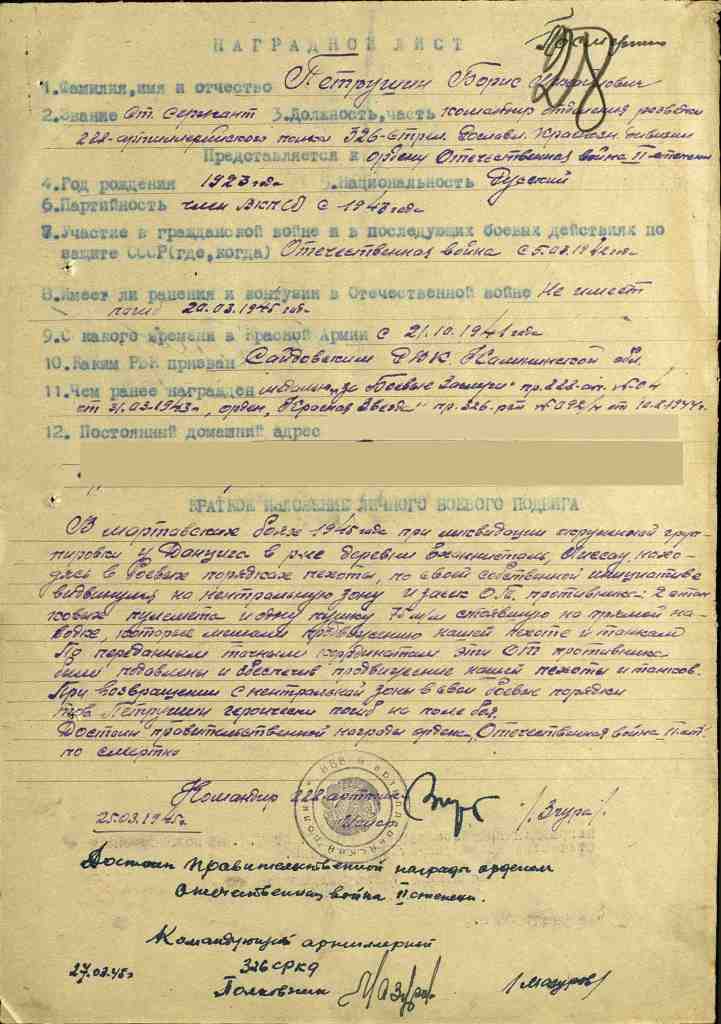 Посмертно
28
НАГРАДНОЙ ЛИСТ
1.Фамилия,имя и отчество Петрушин Борис
2.Звание Ст. Сержант 3.Должность,часть командир отделения разведки
222-артиллерийского полка 326-стрел. Рославл. Краснозн. дивизии
Представляется к ордену Отечественная война II-степени
4.Год рождения 1923 года 5.Национальность Русский
6.Партийность член ВКП(б) с 1943 года
7.Участие в гражданской войне и в последующих боевых действиях по
защите СССР(где,когда) Отечественная война с 5.03.1942 года
8.Имеет ли ранения и контузии в Отечественной войне Не имеет
погиб 20.03.1945 года
9.С какого времени в Красной Армии с 21.10.1941 года
10.Каким РВК призван РВК Калининской обл.
11.Чем ранее награжден медалью „за Боевые Заслуги" пр. 222-ап. №04
от 31.03.1943г, орден „Красная Звезда" пр. 326-
12. Постоянный домашний адрес
КРАТКОЕ ИЗЛОЖЕНИЕ ЛИЧНОГО БОЕВОГО ПОДВИГА
В мартовских боях 1945 года при ликвидации окруженной груп-
пировки у Данцига в р-не деревни нахо-
дясь в боевых порядках пехоты, по своей собственной инициативе
выдвинулся на нентральную зону и засек О.Т. противника: 2 стан-
ковых пулемета и одну пушку 75 м/м стоявшую на прямой на-
водке, которые мешали продвижению нашей пехоте и танкам.
По переданным точным координатам эти ОТ противника
были подавлены и обеспечив продвижение нашей пехоты и танков.
При возвращении с нентральной зоны в свои боевые порядки
тов. Петрушин героически погиб на поле боя.
Достоин правительственной награды ордена „Отечественная война II-ст."
по смертно
Командир 222-артполка
25.03.1945г. Майор /Згура/.
Достоин правительственной награды орденом
отечественная война II степени.
Командующий артиллерией
326 СРКД
27.03.45г Полковник /Мазуров/